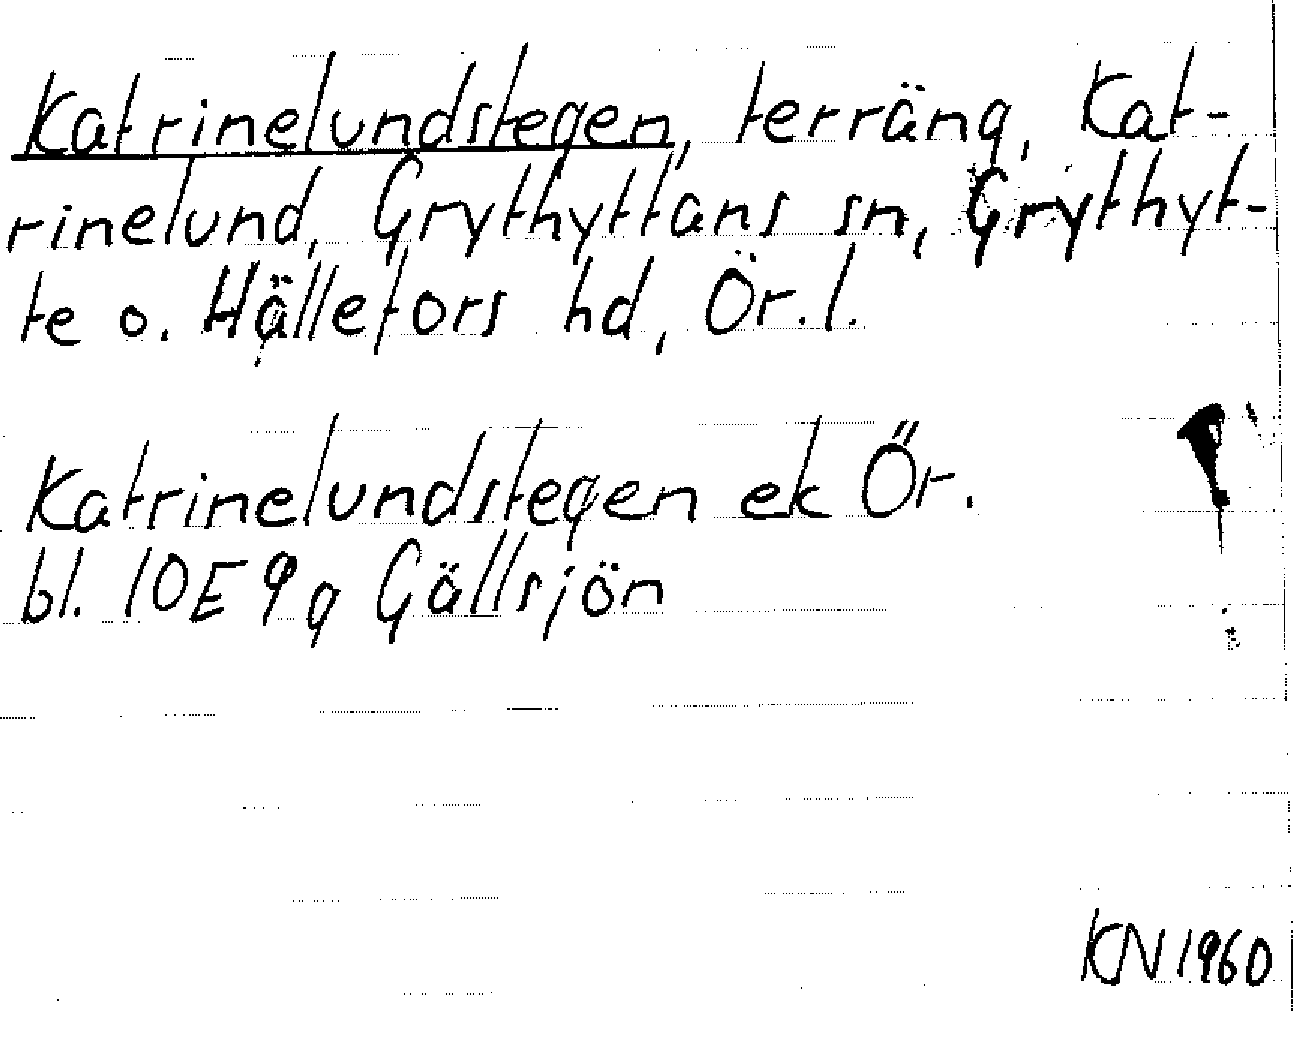 Katrinelundstegen, terräng, Kat-
rinelund, Grythyttans sn, Grythyt-
te o. Hällefors hd, Ör. l.
Katrinelundstegen ek Ör.
bl. 10E 9g Gällsjön
KN 1960